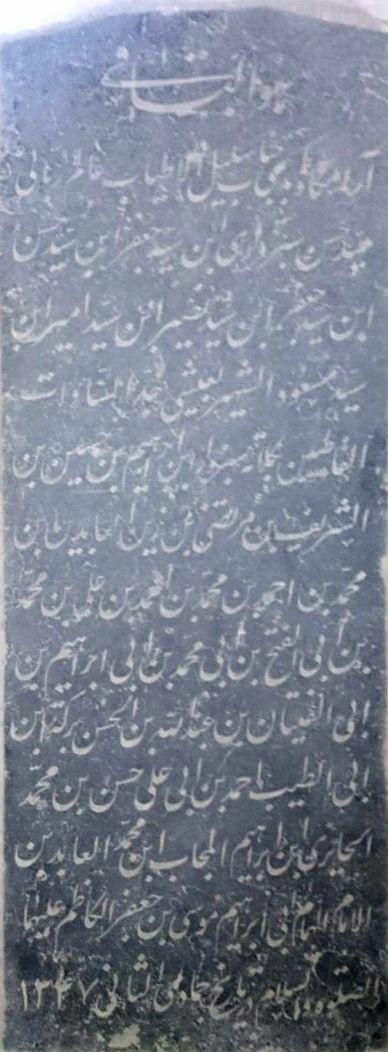 هو الباقی
آرامگاه سلیل الاطیاب عالم
سید حسن سبزواری ابن سید جعفر ابن سید حسن
ابن سید جعفر ابن سید نصیر ابن سید امیر ابن
سید مسعود الشهیر بعیشی جد السادات
الفاطمین ابراهیم بن حسین بن
الشریف بن مرتضی بن زین العابدین ابن
محمد بن احمد بن محمد بن احمد بن علی بن محمد
بن ابی الفتح بن ابی محمد بن ابی ابراهیم بن
ابی الفتیان بن عبدالله بن الحسن برکة ابن
ابی الطیب احمد بن ابی علی حسن بن محمد
الحائری ابن ابراهیم المجاب ابن محمد العابد بن
الامام الهمام ابی ابراهیم موسی بن جعفر الکاظم علیها
الصلوة والسلام تاریخ جمادی الثانی ۱۳۴۷